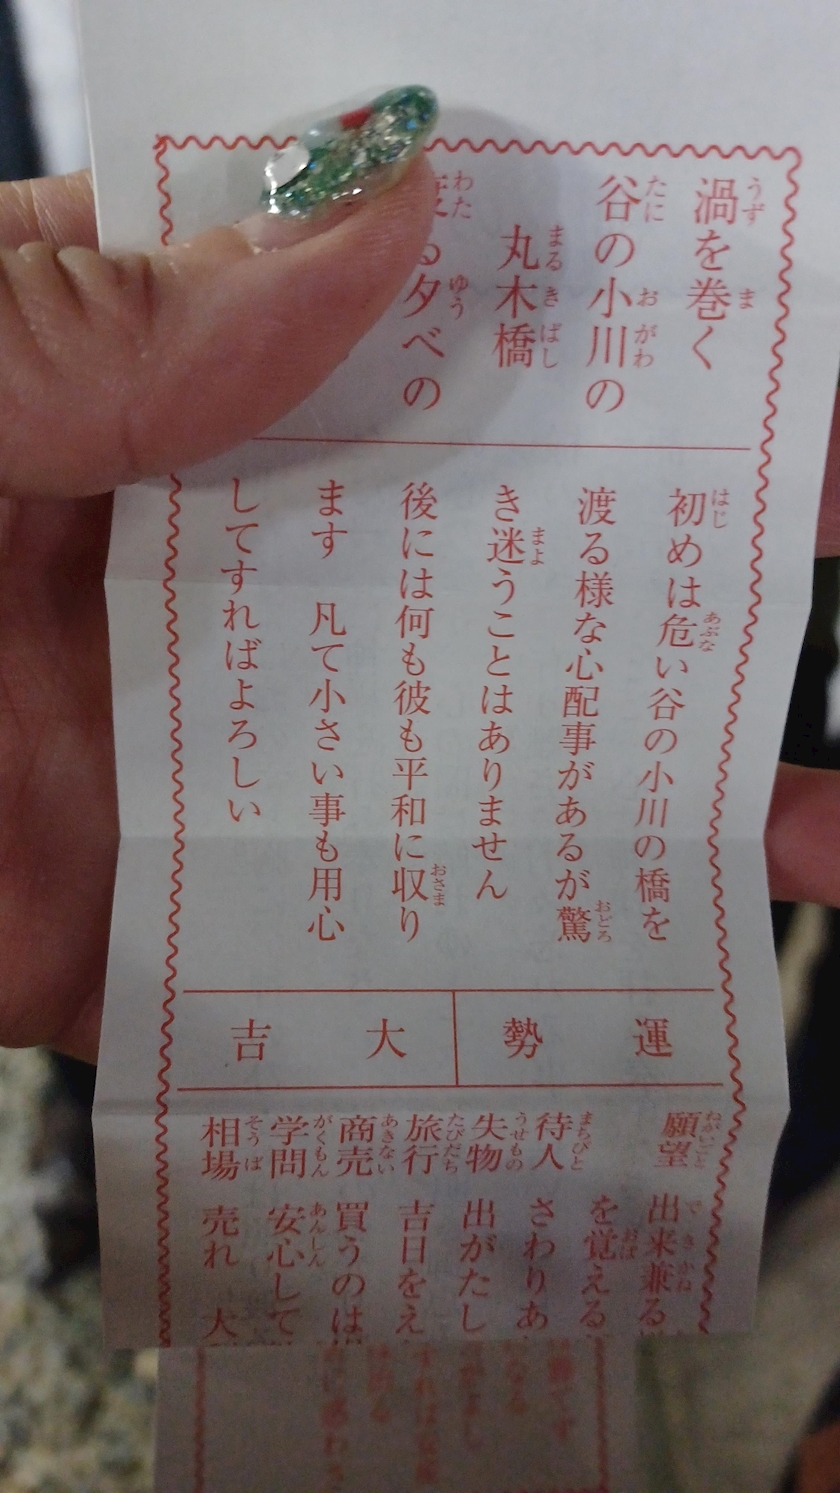 渦を巻く
谷の小川の
丸木橋
る夕べの
初めは危い谷の小川の橋を
渡る様な心配事があるが驚
き迷うことはありません
後には何も彼も平和に収り
ます　凡て小さい事も用心
してすればよろしい
運勢
大吉
願望　出来兼る
を覚える
待人　さわりあ
失物　出がたし
旅行　吉日をえ
商売　買うのは
学問　安心して
相場　売れ　大